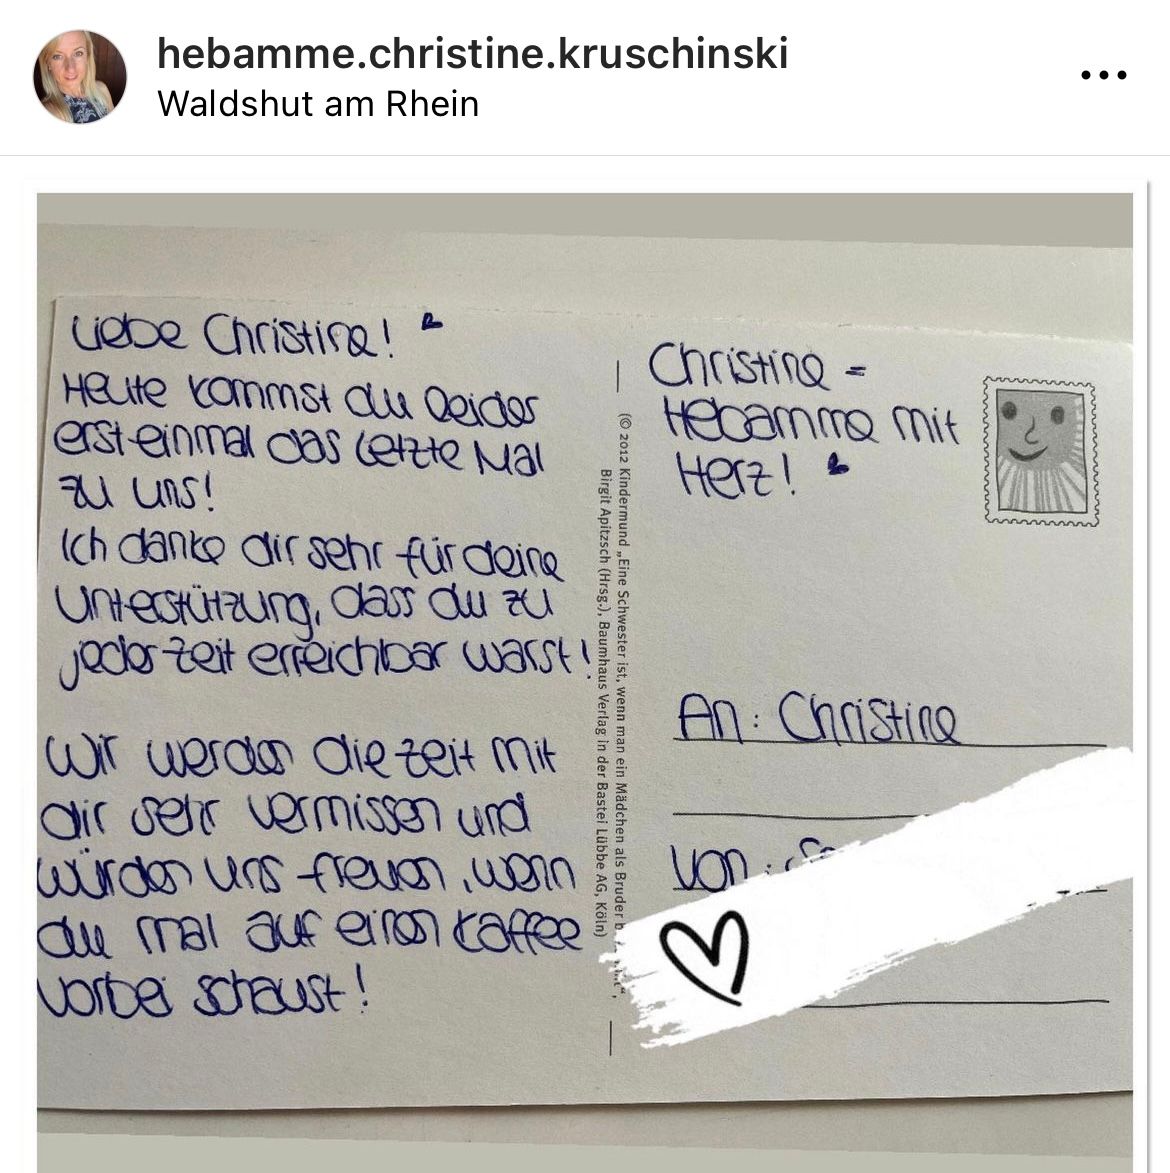 hebamme.christine.kruschinski
Waldshut am Rhein
Liebe Christine!
Heute kommst du leider
ersteinmal das letzte Mal
zu uns!
Ich danke dir sehr für deine
Unterstützung, dass du zu
jeder Zeit erreichbar warst!
Wir werden die Zeit mit
dir sehr vermissen und
würden uns freuen, wenn
du mal auf einen Kaffee
vorbei schaust!
(© 2012 Kindermund „Eine Schwester ist, wenn man ein Mädchen als Bruder
Birgit Apitzsch (Hrsg.), Baumhaus Verlag in der Bastei Lübbe AG, Köln)
Christine =
Hebamme mit
Herz!
An: Christine
Von: